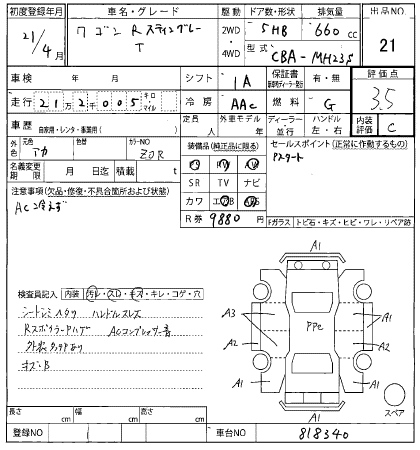 初度登録年月 車名・グレード 駆動 ドア数・形状 排気量 出品NO
21/4月 ワゴンR スティングレー T 2WD 4WD 5HB 660cc 21
型式 CBA-MH23S
車検 年 月 シフト IA 保証書 有・無 評価点
走行 21万2千005 キロ・マイル 冷房 AAC 燃料 G 3.5
車歴 自家用・レンタ・事業用( ) 定員 人 外車モデル 年 ディーラー 並行 ハンドル 左・右 内装評価 C
外色 元色 アカ 色替 カラーNO ZCR 装備品(純正品に限る) セールスポイント(正常に作動するもの)
PS PW
名義変更期限 月 日迄 積載 t SR TV ナビ
注意事項(欠品・修復・不具合箇所および状態) カワ エアB
AC冷えず R券 9880 Fガラス トビ石・キズ・ヒビ・ワレ・リペア跡
検査員記入 内装 汚レ・スロ・キズ・キレ・コゲ・穴
シートシミヘタリ ハンドルスレ
Rスポイラーハゲ ACコンプレッサー音
外装タッチあり
キズ・B
A1
A3 A1
PPe
A2 A2
A1 A1
A1
スペア
長さ cm 幅 cm 高さ cm
登録NO 車台NO 818340